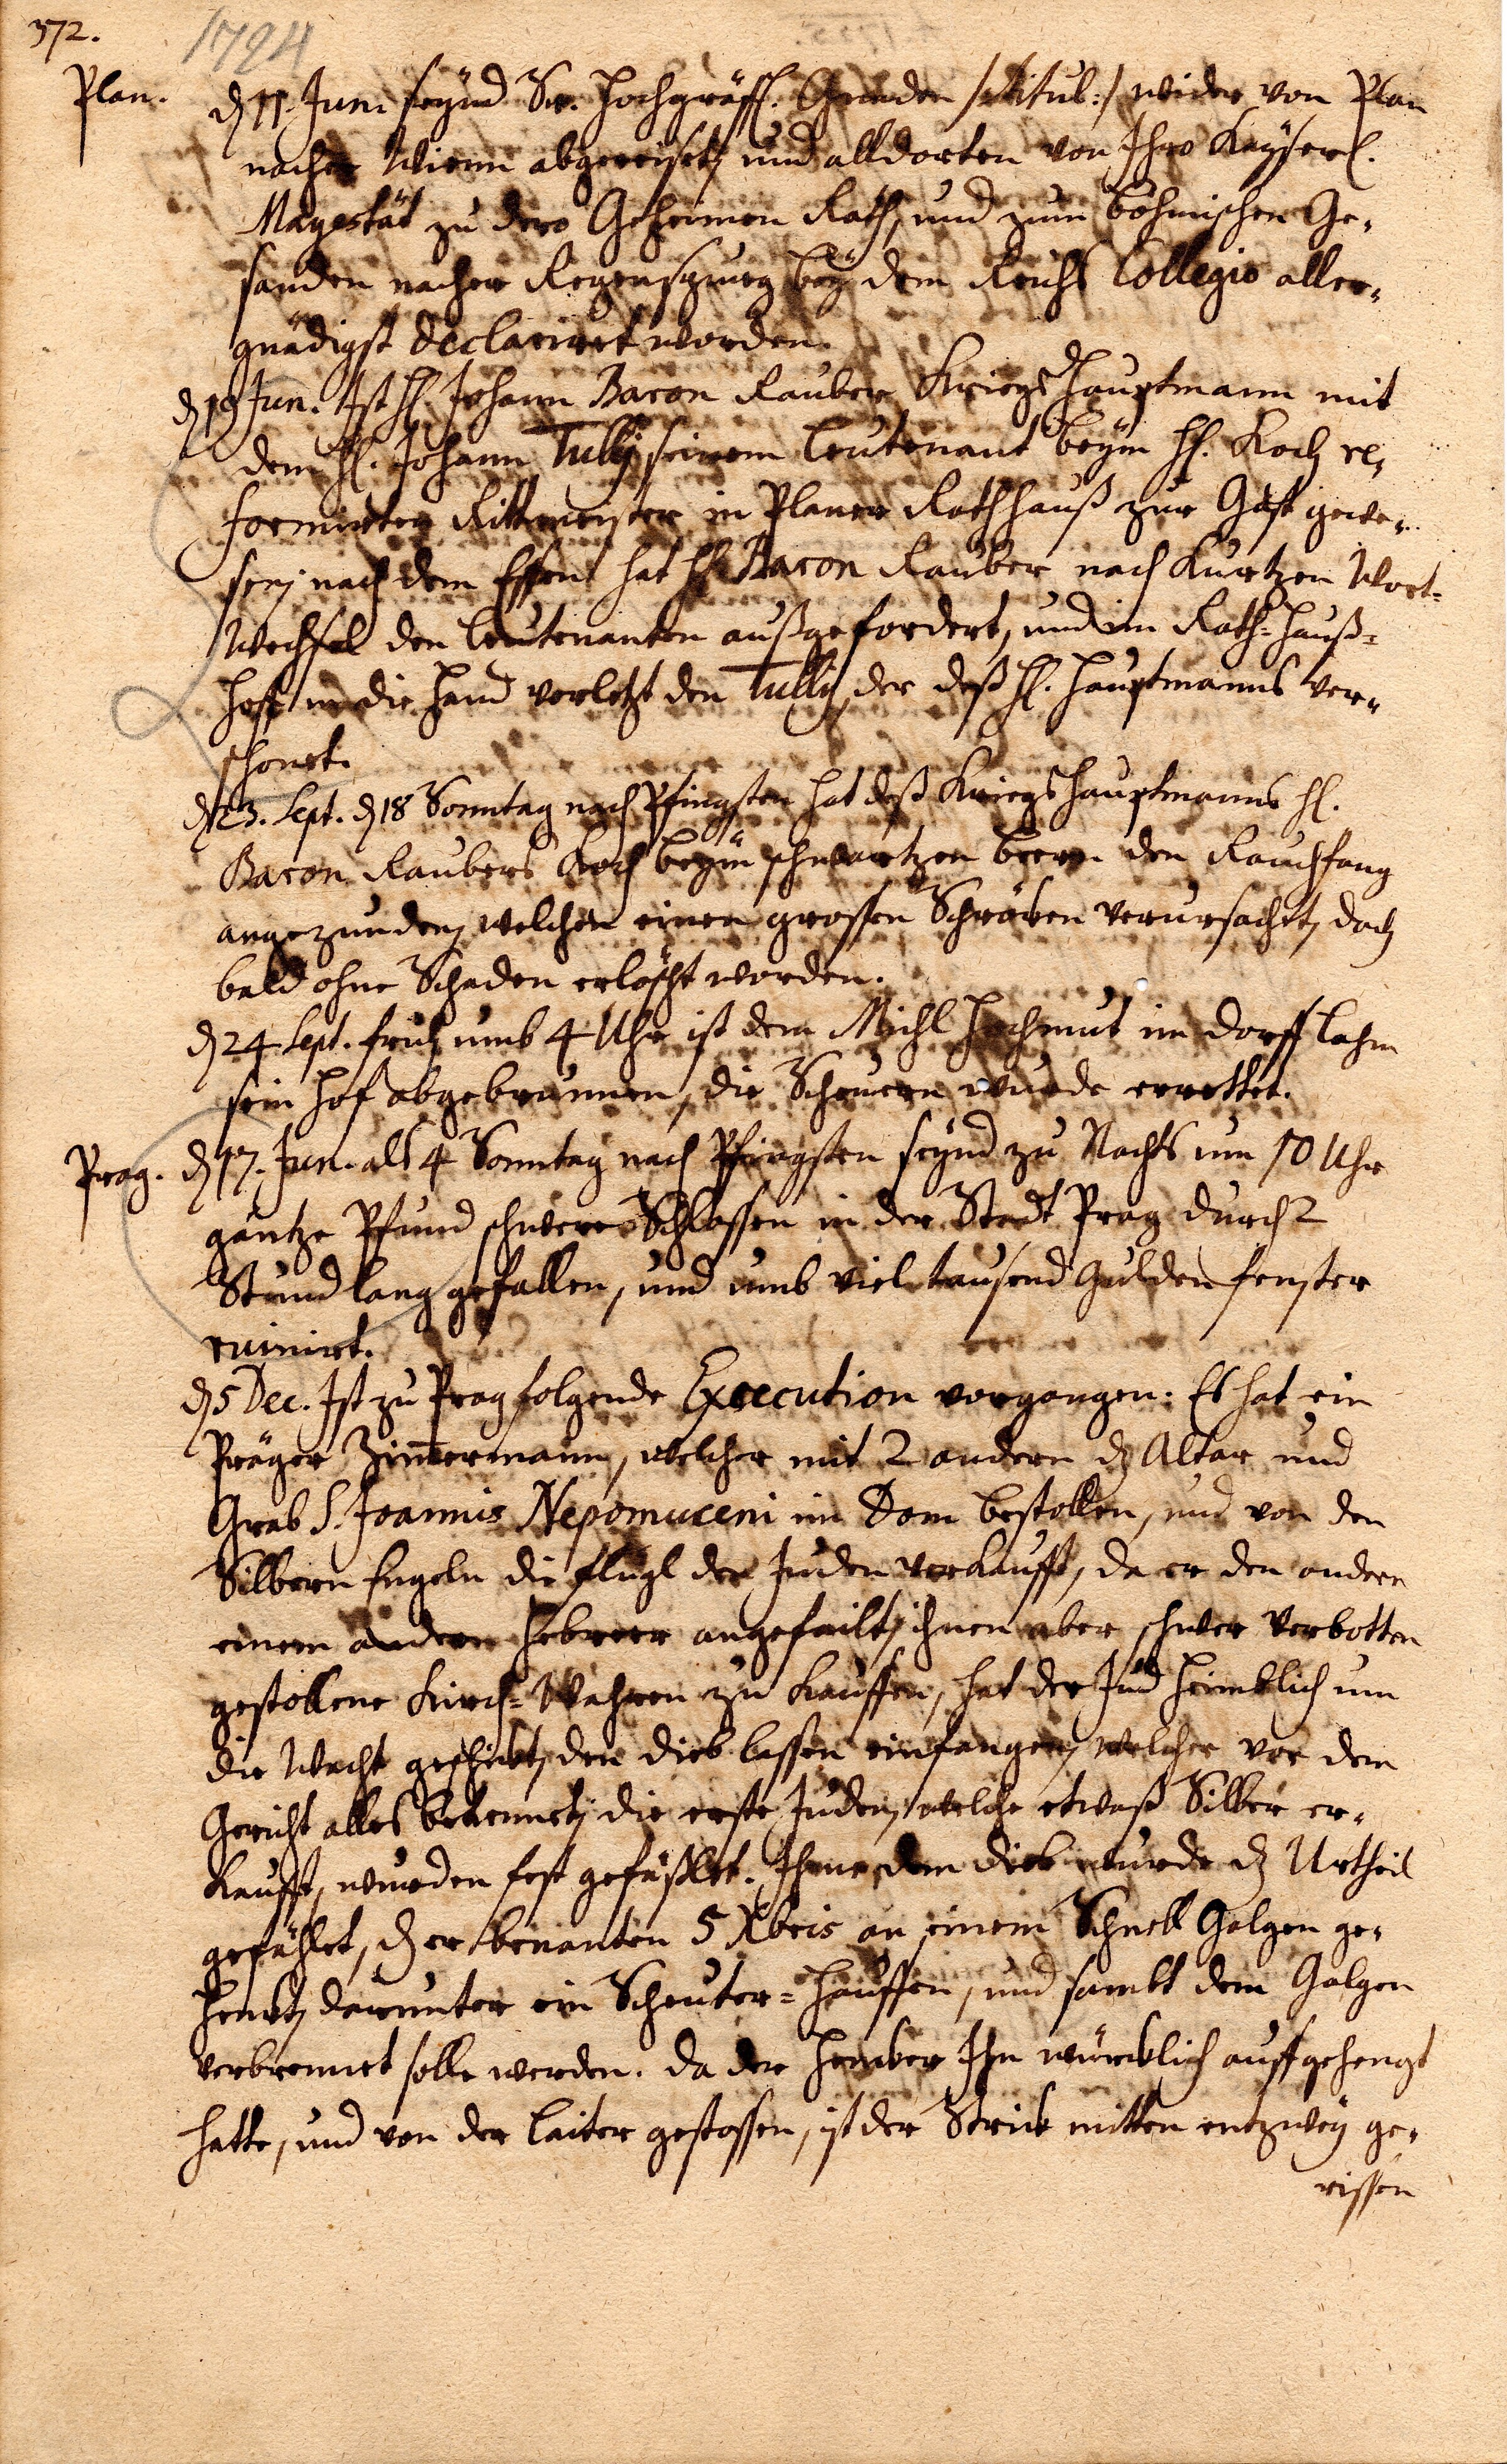 372.
1724
Plan.
dn 11. Jun. seÿnd Sr. Hochgräffl. Gnaden /:titul:/ wider von Plan
nacher Wienn abgereiset, und alldorten von Ihro Kaÿserl.
Magestät zu dero Geheimen Rath, und zum böhmischen Ge-
sanden nacher Regenspurg beÿ dem Reichs Collegio aller-
gnädigst declariret worden.
dn 19 Jun. Ist H. Johann Baron Rauber Kriegs Hauptmann mit
dem H. Johann Tullij seinem Leutenant beÿm H. Koch re-
formirten Rittmeister in Planer Rathhauß zur Gast gewe-
sen, nach dem Essen hat H. Baron Rauber nach Kurtzen Wort-
Wechsel den Leutenanten außgefordert, und im Rath-Hauß-
Hoff in die Hand verletzt den Tullij, der deß H. Hauptmanns ver-
schonet.
dn 23. Sept. dn 18 Sonntag nach Pfingsten hat deß Kriegs Hauptmanns H.
Baron Raubers Koch beÿm schwartzen beern den Rauchfang
angezunden, welcher einen grossen Schröken verursachet, doch
bald ohne Schaden erlöscht worden.
dn 24 Sept. fruh umb 4 Uhr ist dem Michl Hochmut im Dorff Lahm
sein Hof abgebrunnen, die Scheuern wurde errettet.
Prag.
dn 17. Jun. als 4 Sonntag nach Pfingsten seÿnd zu Nachts um 10 Uhr
gantze Pfund schwere Schlossen in der Stadt Prag durch 2
Stund lang gefallen, und umb viel tausend Gulden fenster
ruinirt.
dn 5 Dec. Ist zu Prag folgende Execution vorgangen: Es hat ein
Präger Zim̅ermann, welcher mit 2 andern dz Altar und
Grab S. Joannis Nepomuceni im Dom bestollen, und von den
Silbern Engeln die flügl der Juden verkaufft, da er den andern
einem andern Hebreer angefeilt, ihnen aber schwer verbotten
gestollene Kirch-Wahren zu kauffen, hat der Jud heimblich um
die Wacht geschickt, den dieb lassen einfangen, welcher vor dem
Gericht alles bekennet, die erste Juden, welche etwaß Silber er-
kaufft, wurden fest gefäßlet. Ihme dem dieb wurde dz Urtheil
gefählet, dz er benanten 5 Xbris an einem Schnell Galgen ge-
henkt, darunter ein Scheuter-Hauffen, und sambt dem Galgen
verbrennet solle werden. da der Henker Ihn würcklich auffgehengt
hatte, und von der Laiter gestossen, ist der Strick mitten entzweÿ ge-
rissen